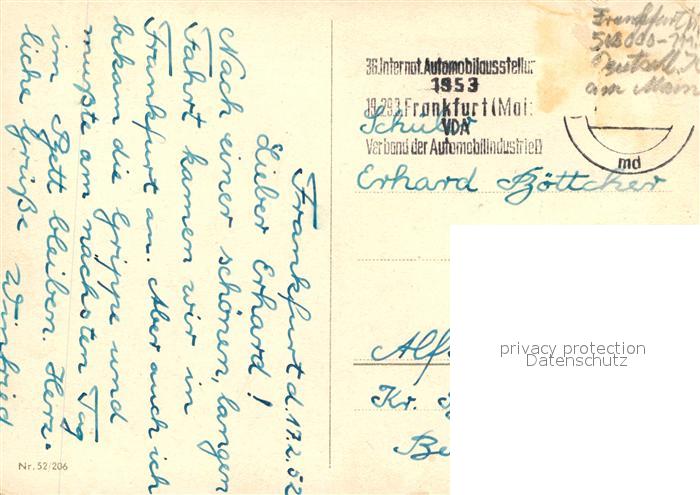 Frankfurt d. 17.2.52
Lieber Erhard!
Nach einer schönen, langen
Fahrt kamen wir in
Frankfurt an. Aber auch ich
bekam die Grippe und
mußte am nächsten Tag
im Bett bleiben. Herz-
liche Grüße Winfried
Nr. 52/206
36.Internat.Automobilausstellung
1953
19.-29.3.Frankfurt(Main
VDA
Verband der Automobilindustrie
md
Frankfurt
am Main
Schüler
Erhard Böttcher
Kr.
privacy protection
Datenschutz